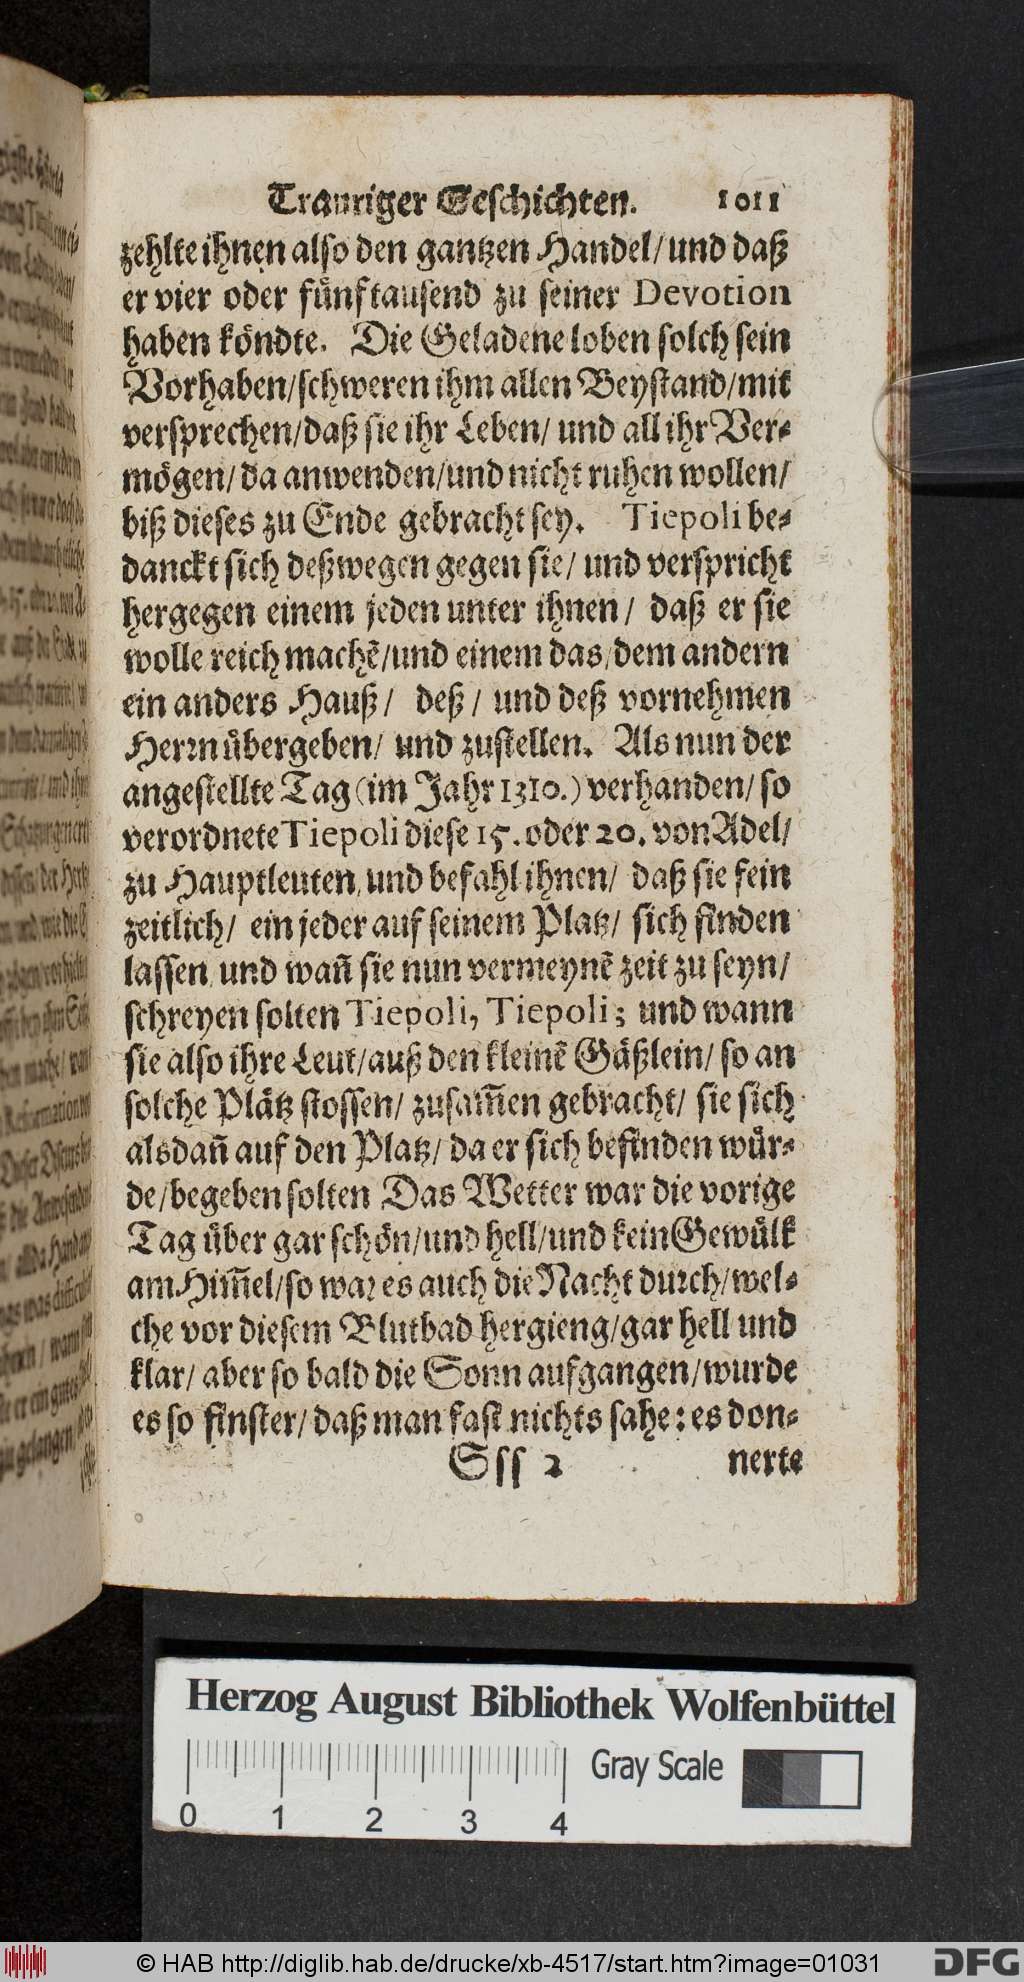 Trauriger Geschichten. 1011
zehlte ihnen also den gantzen Handel/ und daß
er vier oder fünftausend zu seiner Devotion
haben köndte. Die Geladene loben solch sein
Vorhaben/ schweren ihm allen Beystand/ mit
versprechen/ daß sie ihr Leben/ und all ihr Ver-
mögen/ da anwenden/ und nicht ruhen wollen/
biß dieses zu Ende gebracht sey. Tiepoli be-
danckt sich deßwegen gegen sie/ und verspricht
hergegen einem jeden unter ihnen/ daß er sie
wolle reich machē/ und einem das/ dem andern
ein anders Hauß/ deß/ und deß vornehmen
Herrn übergeben/ und zustellen. Als nun der
angestellte Tag (im Jahr 1310.) verhanden/ so
verordnete Tiepoli diese 15. oder 20. von Adel/
zu Hauptleuten, und befahl ihnen/ daß sie fein
zeitlich/ ein jeder auf seinem Platz/ sich finden
lassen, und wañ sie nun vermeynē zeit zu seyn/
schreyen solten Tiepoli, Tiepoli; und wann
sie also ihre Leut/ auß den kleinē Gäßlein/ so an
solche Plätz stossen/ zusam̃en gebracht/ sie sich
alsdañ auf den Platz/ da er sich befinden wür-
de/ begeben solten Das Wetter war die vorige
Tag über gar schön/ und hell/ und kein Gewülk
am Him̃el/ so war es auch die Nacht durch/ wel-
che vor diesem Blutbad hergieng/ gar hell und
klar/ aber so bald die Sonn aufgangen/ wurde
es so finster/ daß man fast nichts sahe: es don-
Sss 2 nerte
Herzog August Bibliothek Wolfenbüttel
Gray Scale
0 1 2 3 4
© HAB http://diglib.hab.de/drucke/xb-4517/start.htm?image=01031
DFG